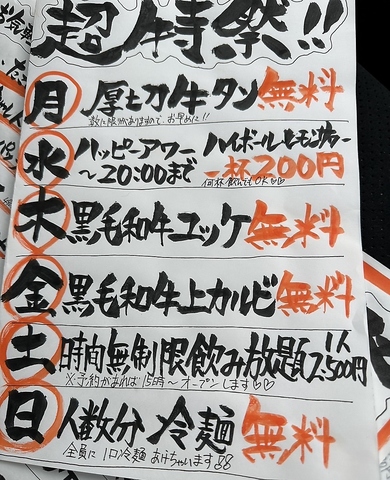 超特祭!!
月 厚切牛タン無料
数に限がありますので、お早めに!!
水 ハッピーアワー ハイボール・レモンサワー
～20:00まで 一杯200円
何杯飲んでもOK♡♡
木 黒毛和牛ユッケ 無料
金 黒毛和牛上カルビ 無料
土 時間無制限飲み放題 1人2,500円
※予約があれば15時～オープンします♡♡
日 人数分 冷麺 無料
全員に1口冷麺あげちゃいます